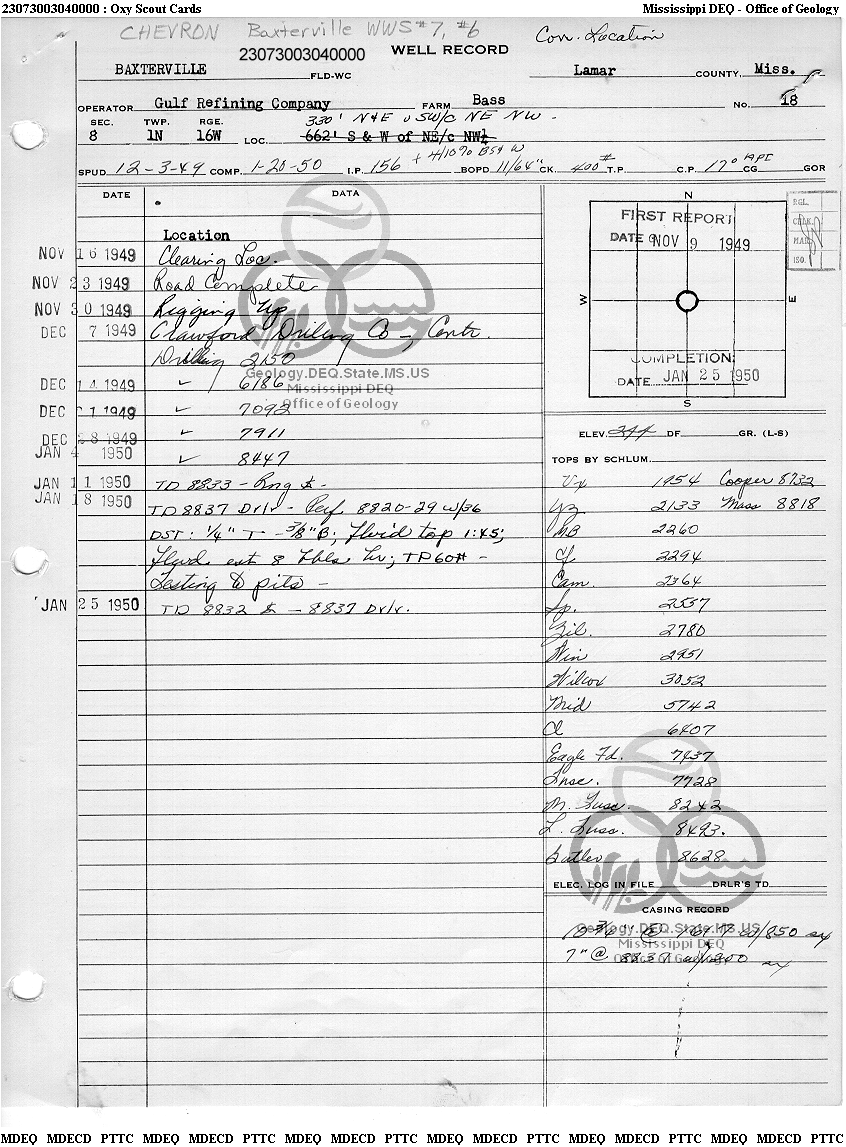 23073003040000 : Oxy Scout Cards Mississippi DEQ - Office of Geology
CHEVRON Baxterville WWS #7, #6 Corr. Location
23073003040000 WELL RECORD
BAXTERVILLE FLD-WC Lamar COUNTY, Miss.
OPERATOR Gulf Refining Company FARM Bass NO. 18
330' N & E o SW/c NE NW -
SEC. TWP. RGE.
8 1N 16W LOC. 662' S & W of NE/c NW¼
+ 4/10% BS & W
SPUD 12-3-49 COMP. 1-20-50 I.P. 156 BOPD 11/64" CK. 400# T.P. C.P. 17° API CG GOR
DATE DATA
N
RGL.
CHK.
MAIL
ISO.
FIRST REPORT
DATE NOV 9 1949
W E
COMPLETION:
DATE JAN 25 1950
S
Location
NOV 16 1949 Clearing Loc.
NOV 23 1949 Road Complete
NOV 30 1949 Rigging Up
DEC 7 1949 Crawford Drilling Co -, Contr.
Drilling 2150
Geology.DEQ.State.MS.US
DEC 14 1949 ✓ 6186
Mississippi DEQ
Office of Geology
DEC 21 1949 ✓ 7092
DEC 28 1949 ✓ 7911
JAN 4 1950 ✓ 8447
JAN 11 1950 TD 8833 - Rng
JAN 18 1950 TD 8837 Drlr - Perf 8820-29 w/36
DST: ¼" T - 3/8" B; fluid top 1:45;
fluid est 8 bbls hr; TP 60# -
Testing to pits -
JAN 25 1950 TD 8832 - 8837 Drlr.
ELEV. 244 DF GR. (L-S)
TOPS BY SCHLUM.
Vx 1954 Cooper 8732
Yz 2133 Mass 8818
MB 2260
Cf 2294
Cam. 2364
Sp. 2557
Zil. 2780
Win 2951
Wilcox 3052
Mid 5742
Cl 6407
Eagle Fd. 7437
Tusc. 7728
M. Tusc. 8242
L. Tusc. 8493.
Butler 8628
ELEC. LOG IN FILE DRLR'S TD
CASING RECORD
10 ¾" @ w/850 sx
Geology.DEQ.State.MS.US
Mississippi DEQ
7" @ 8837 sx
Office of Geology
MDEQ MDECD PTTC MDEQ MDECD PTTC MDEQ MDECD PTTC MDEQ MDECD PTTC MDEQ MDECD PTTC MDEQ MDECD PTTC